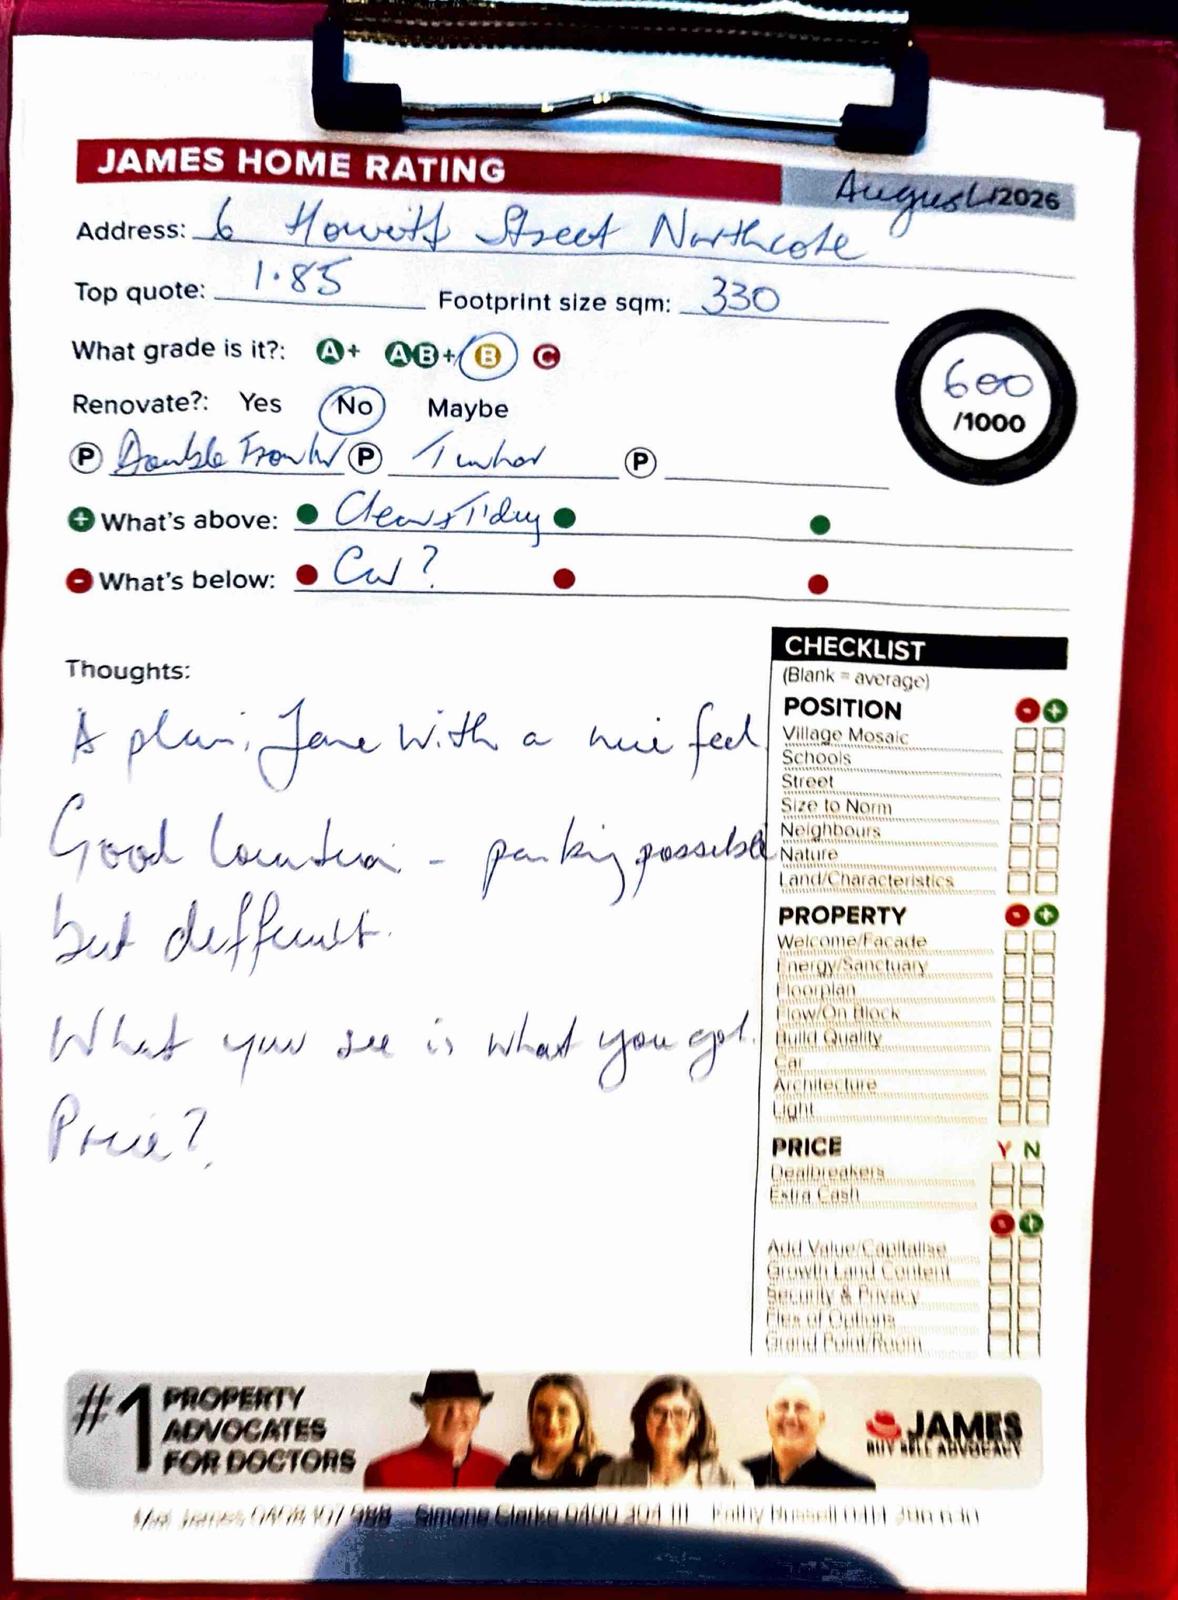 JAMES HOME RATING
August/2026
Address: 6 Howitt Street Northcote
Top quote: 1.85 Footprint size sqm: 330
What grade is it?: A+ AB+ B C
600
/1000
Renovate?: Yes No Maybe
P Double Front P Timber P
+ What's above: Clean & Tidy
- What's below: Car?
Thoughts:
A plain Jane with a nice feel.
Good location - parking possible
but difficult.
What you see is what you get.
Price?
CHECKLIST
(Blank = average)
POSITION - +
Village Mosaic
Schools
Street
Size to Norm
Neighbours
Nature
Land/Characteristics
PROPERTY - +
Welcome/Facade
Energy/Sanctuary
Floorplan
Flow/On Block
Build Quality
Car
Architecture
Light
PRICE Y N
Dealbreakers
Extra Cash
- +
Add Value/Capitalise
Growth Land Content
Security & Privacy
Flex of Options
Grand Point/Room
#1 PROPERTY
ADVOCATES
FOR DOCTORS
JAMES
BUY SELL ADVOCACY
Mal James Simone Clarke Kathy Russell